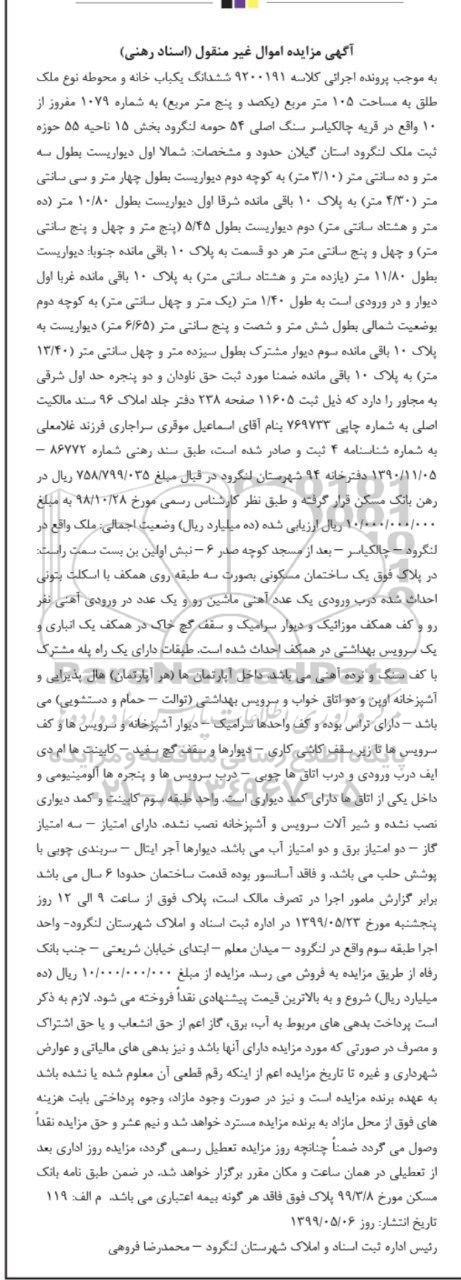 آگهی مزایده اموال غیر منقول (اسناد رهنی)
به موجب پرونده اجرائی کلاسه ۹۲۰۰۱۹۱ ششدانگ یکباب خانه و محوطه نوع ملک
طلق به مساحت ۱۰۵ متر مربع (یکصد و پنج متر مربع) به شماره ۱۰۷۹ مفروز از
۱۰ واقع در قریه چالکیاسر سنگ اصلی ۵۴ حومه لنگرود بخش ۱۵ ناحیه ۵۵ حوزه
ثبت ملک لنگرود استان گیلان حدود و مشخصات: شمالا اول دیواریست بطول سه
متر و ده سانتی متر (۳/۱۰ متر) به کوچه دوم دیواریست بطول چهار متر و سی سانتی
متر (۴/۳۰ متر) به پلاک ۱۰ باقی مانده شرقا اول دیواریست بطول ۱۰/۸۰ متر (ده
متر و هشتاد سانتی متر) دوم دیواریست بطول ۵/۴۵ (پنج متر و چهل و پنج سانتی
متر) و چهل و پنج سانتی متر هر دو قسمت به پلاک ۱۰ باقی مانده جنوبا: دیواریست
بطول ۱۱/۸۰ متر (یازده متر و هشتاد سانتی متر) به پلاک ۱۰ باقی مانده غربا اول
دیوار و در ورودی است به طول ۱/۴۰ متر (یک متر و چهل سانتی متر) به کوچه دوم
بوضعیت شمالی بطول شش متر و شصت و پنج سانتی متر (۶/۶۵ متر) دیواریست به
پلاک ۱۰ باقی مانده سوم دیوار مشترک بطول سیزده متر و چهل سانتی متر (۱۳/۴۰
متر) به پلاک ۱۰ باقی مانده ضمنا مورد ثبت حق ناودان و دو پنجره حد اول شرقی
به مجاور را دارد که ذیل ثبت ۱۱۶۰۵ صفحه ۲۳۸ دفتر جلد املاک ۹۶ سند مالکیت
اصلی به شماره چاپی ۷۶۹۷۳۳ بنام آقای اسماعیل موقری سراجاری فرزند غلامعلی
به شماره شناسنامه ۴ ثبت و صادر شده است، طبق سند رهنی شماره ۸۶۷۷۲ –
۱۳۹۰/۱۱/۰۵ دفترخانه ۹۴ شهرستان لنگرود در قبال مبلغ ۷۵۸/۷۹۹/۰۳۵ ریال در
رهن بانک مسکن قرار گرفته و طبق نظر کارشناس رسمی مورخ ۹۸/۱۰/۲۸ به مبلغ
۱۰/۰۰۰/۰۰۰/۰۰۰ ریال ارزیابی شده (ده میلیارد ریال) وضعیت اجمالی: ملک واقع در
لنگرود – چالکیاسر – بعد از مسجد کوچه صدر ۶ – نبش اولین بن بست سمت راست:
در پلاک فوق یک ساختمان مسکونی بصورت سه طبقه روی همکف با اسکلت بتونی
احداث شده درب ورودی یک عدد آهنی ماشین رو و یک عدد در ورودی آهنی نفر
رو و کف همکف موزائیک و دیوار سرامیک و سقف گچ خاک در همکف یک انباری و
یک سرویس بهداشتی در همکف احداث شده است. طبقات دارای یک راه پله مشترک
با کف سنگ و نرده آهنی می باشد. داخل آپارتمان ها (هر آپارتمان) هال پذیرایی و
آشپزخانه اوپن و دو اتاق خواب و سرویس بهداشتی (توالت – حمام و دستشویی) می
باشد – دارای تراس بوده و کف واحدها سرامیک – دیوار آشپزخانه و سرویس ها و کف
سرویس ها تا زیر سقف کاشی کاری – دیوارها و سقف گچ سفید – کابینت ها ام دی
ایف درب ورودی و درب اتاق ها چوبی – درب سرویس ها و پنجره ها آلومینیومی و
داخل یکی از اتاق ها دارای کمد دیواری است. واحد طبقه سوم کابینت و کمد دیواری
نصب نشده و شیر آلات سرویس و آشپزخانه نصب نشده. دارای امتیاز – سه امتیاز
گاز – دو امتیاز برق و دو امتیاز آب می باشد. دیوارها آجر ایتال – سربندی چوبی با
پوشش حلب می باشد. و فاقد آسانسور بوده قدمت ساختمان حدودا ۶ سال می باشد
برابر گزارش مامور اجرا در تصرف مالک است، پلاک فوق از ساعت ۹ الی ۱۲ روز
پنجشنبه مورخ ۱۳۹۹/۰۵/۲۳ در اداره ثبت اسناد و املاک شهرستان لنگرود- واحد
اجرا طبقه سوم واقع در لنگرود – میدان معلم – ابتدای خیابان شریعتی – جنب بانک
رفاه از طریق مزایده به فروش می رسد. مزایده از مبلغ ۱۰/۰۰۰/۰۰۰/۰۰۰ ریال (ده
میلیارد ریال) شروع و به بالاترین قیمت پیشنهادی نقداً فروخته می شود. لازم به ذکر
است پرداخت بدهی های مربوط به آب، برق، گاز اعم از حق انشعاب و یا حق اشتراک
و مصرف در صورتی که مورد مزایده دارای آنها باشد و نیز بدهی های مالیاتی و عوارض
شهرداری و غیره تا تاریخ مزایده اعم از اینکه رقم قطعی آن معلوم شده یا نشده باشد
به عهده برنده مزایده است و نیز در صورت وجود مازاد، وجوه پرداختی بابت هزینه
های فوق از محل مازاد به برنده مزایده مسترد خواهد شد و نیم عشر و حق مزایده نقداً
وصول می گردد ضمناً چنانچه روز مزایده تعطیل رسمی گردد، مزایده روز اداری بعد
از تعطیلی در همان ساعت و مکان مقرر برگزار خواهد شد. در ضمن طبق نامه بانک
مسکن مورخ ۹۹/۳/۸ پلاک فوق فاقد هر گونه بیمه اعتباری می باشد. م الف: ۱۱۹
تاریخ انتشار: روز ۱۳۹۹/۰۵/۰۶
رئیس اداره ثبت اسناد و املاک شهرستان لنگرود – محمدرضا فروهی
ParsNamadData
پایگاه اطلاع رسانی مناقصه و مزایده
۰۲۱-۸۸۳۴۹۶۷۰-۵